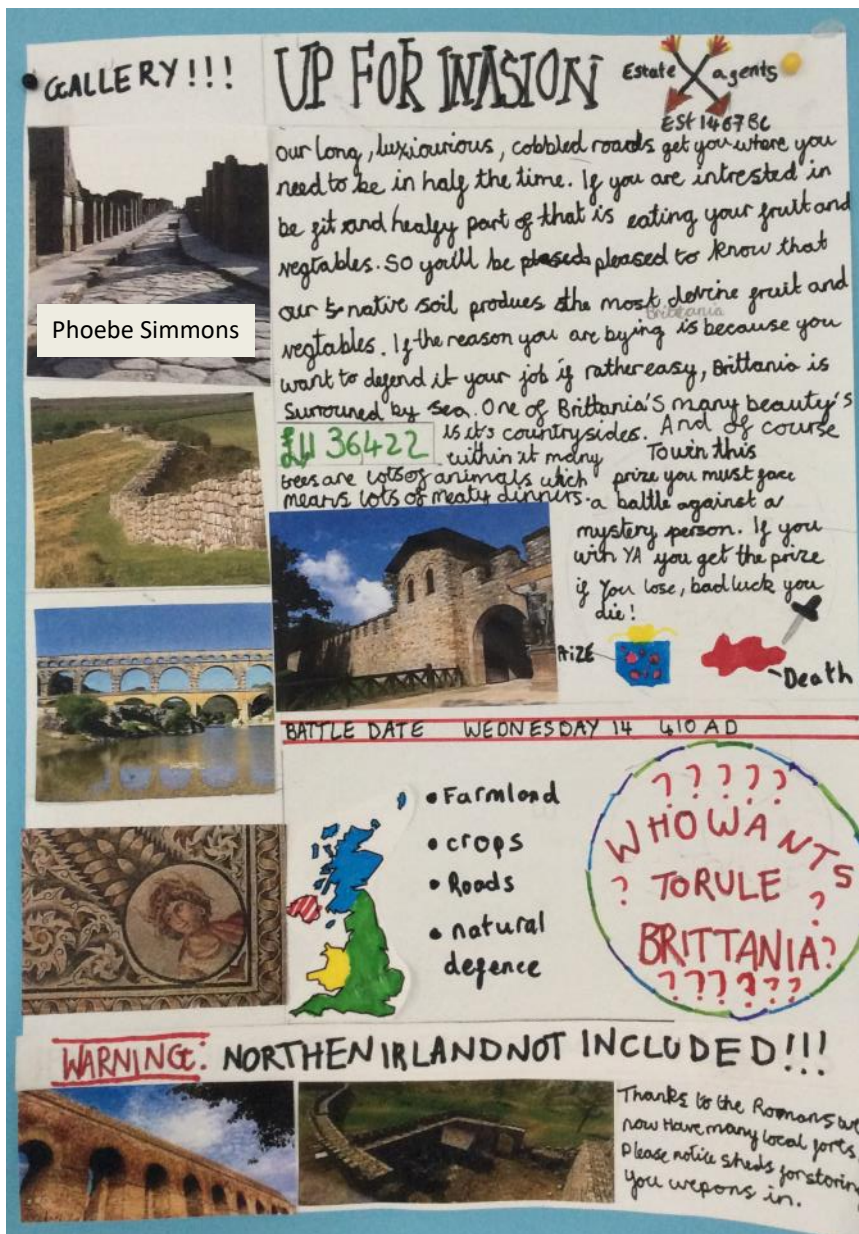 GALLERY!!!
UP FOR INASION
Estate agents
ESt 1467 BC
our long, luxiourious, cobbled roads get you where you
need to be in half the time. If you are intrested in
be fit and healfy part of that is eating your fruit and
vegtables. SO you'll be pleased to know that
our native soil produces the most devine fruit and
Brittania
vegtables. If the reason you are bying is because you
want to defend it your job if rather easy, Brittania is
surrouned by sea. One of Brittania's many beauty's
is it's countrysides. And of course
within it many
trees are lots of animals which
means lots of meaty dinners.
36422
To win this
prize you must face
a battle against a
mystery person. If you
win YA you get the prize
if you lose, bad luck you
die!
PRIZE
Death
Phoebe Simmons
BATTLE DATE WEDNESDAY 14 410 AD
• Farmland
• crops
• Roads
• natural
defence
? ? ? ? ?
WHO WANTS
? TO RULE ?
BRITTANIA?
? ? ? ? ?
WARNING: NORTHEN IRLAND NOT INCLUDED!!!
Thanks to the Romans we
now Have many local forts.
Please notice sheds for storing
you wepons in.